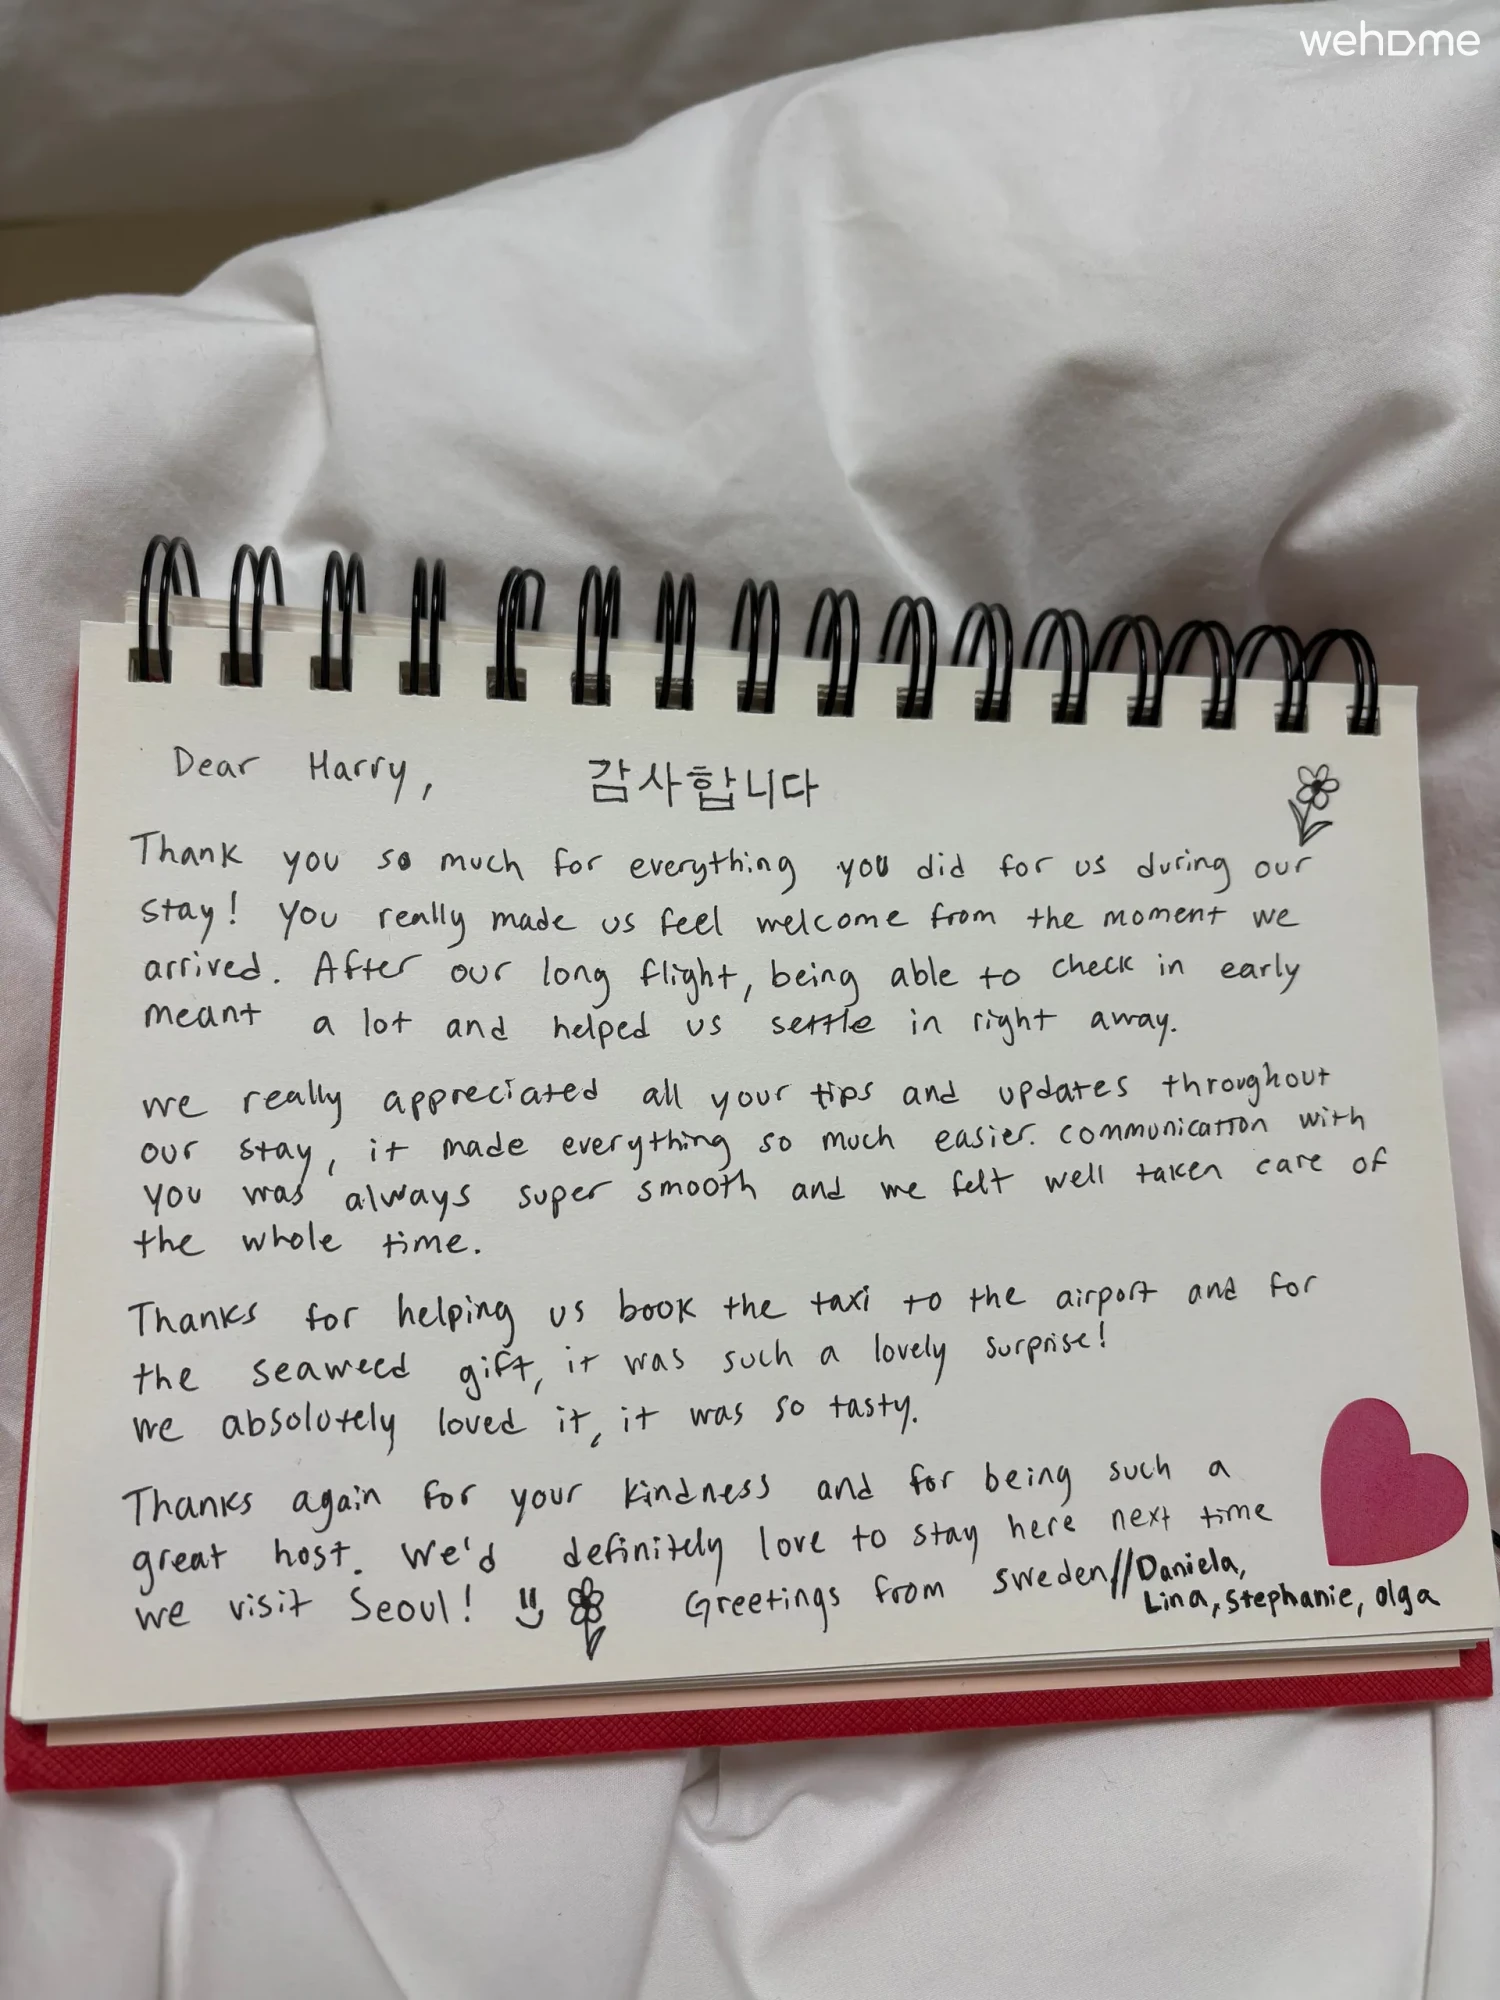 wehome
Dear Harry, 감사합니다
Thank you so much for everything you did for us during our
stay! You really made us feel welcome from the moment we
arrived. After our long flight, being able to check in early
meant a lot and helped us settle in right away.
we really appreciated all your tips and updates throughout
our stay, it made everything so much easier. communication with
you was always super smooth and we felt well taken care of
the whole time.
Thanks for helping us book the taxi to the airport and for
the seaweed gift, it was such a lovely surprise!
we absolutely loved it, it was so tasty.
Thanks again for your kindness and for being such a
great host. We'd definitely love to stay here next time
we visit Seoul! Greetings from sweden//Daniela,
Lina, Stephanie, olga